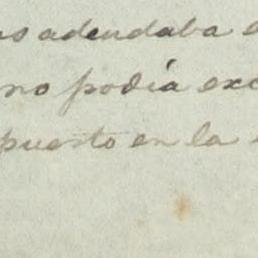 adeudaba
no podia
puesto en la